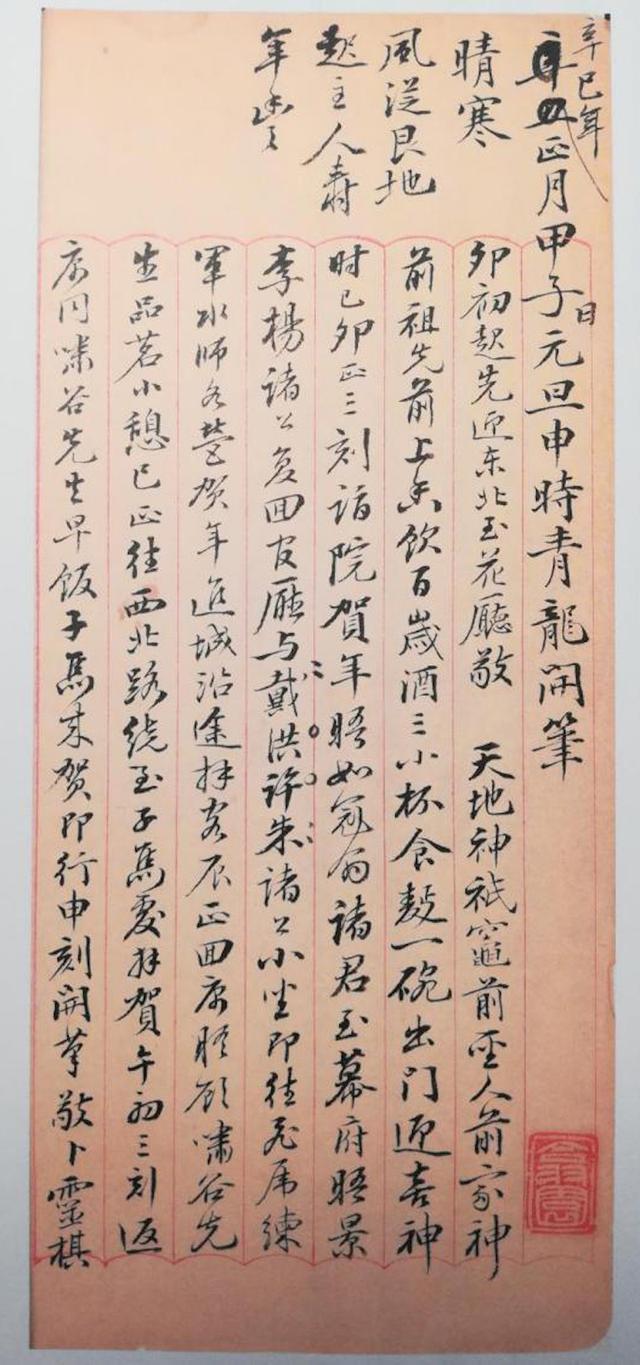 辛巳年
正月甲子日元旦申時青龍開筆
晴寒
風從艮地
起主人壽
年豐
卯初起先迎东北至花廳敬 天地神祇竈前聖人前家神
前祖先前上香飲百歲酒三小杯食麪一碗出門迎喜神
时已卯正三刻詣院賀年晤如冠翁諸君至幕府晤景
李楊諸公复回官廳与戴洪许朱諸公小坐即往飛席練
軍水师各營贺年進城沿途拜客辰正回寓晤顾嘯谷先
生品茗小憩巳正往西北路绕至子馬處拜賀午初三刻返
寓同嘯谷先生早饭子馬来贺即行申刻開筆敬卜靈棋